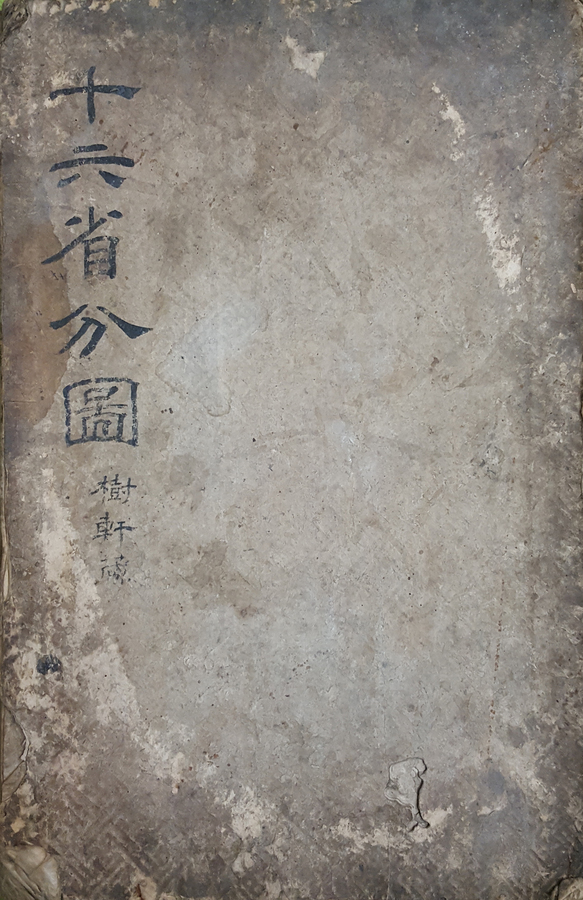 十六省分圖
樹軒